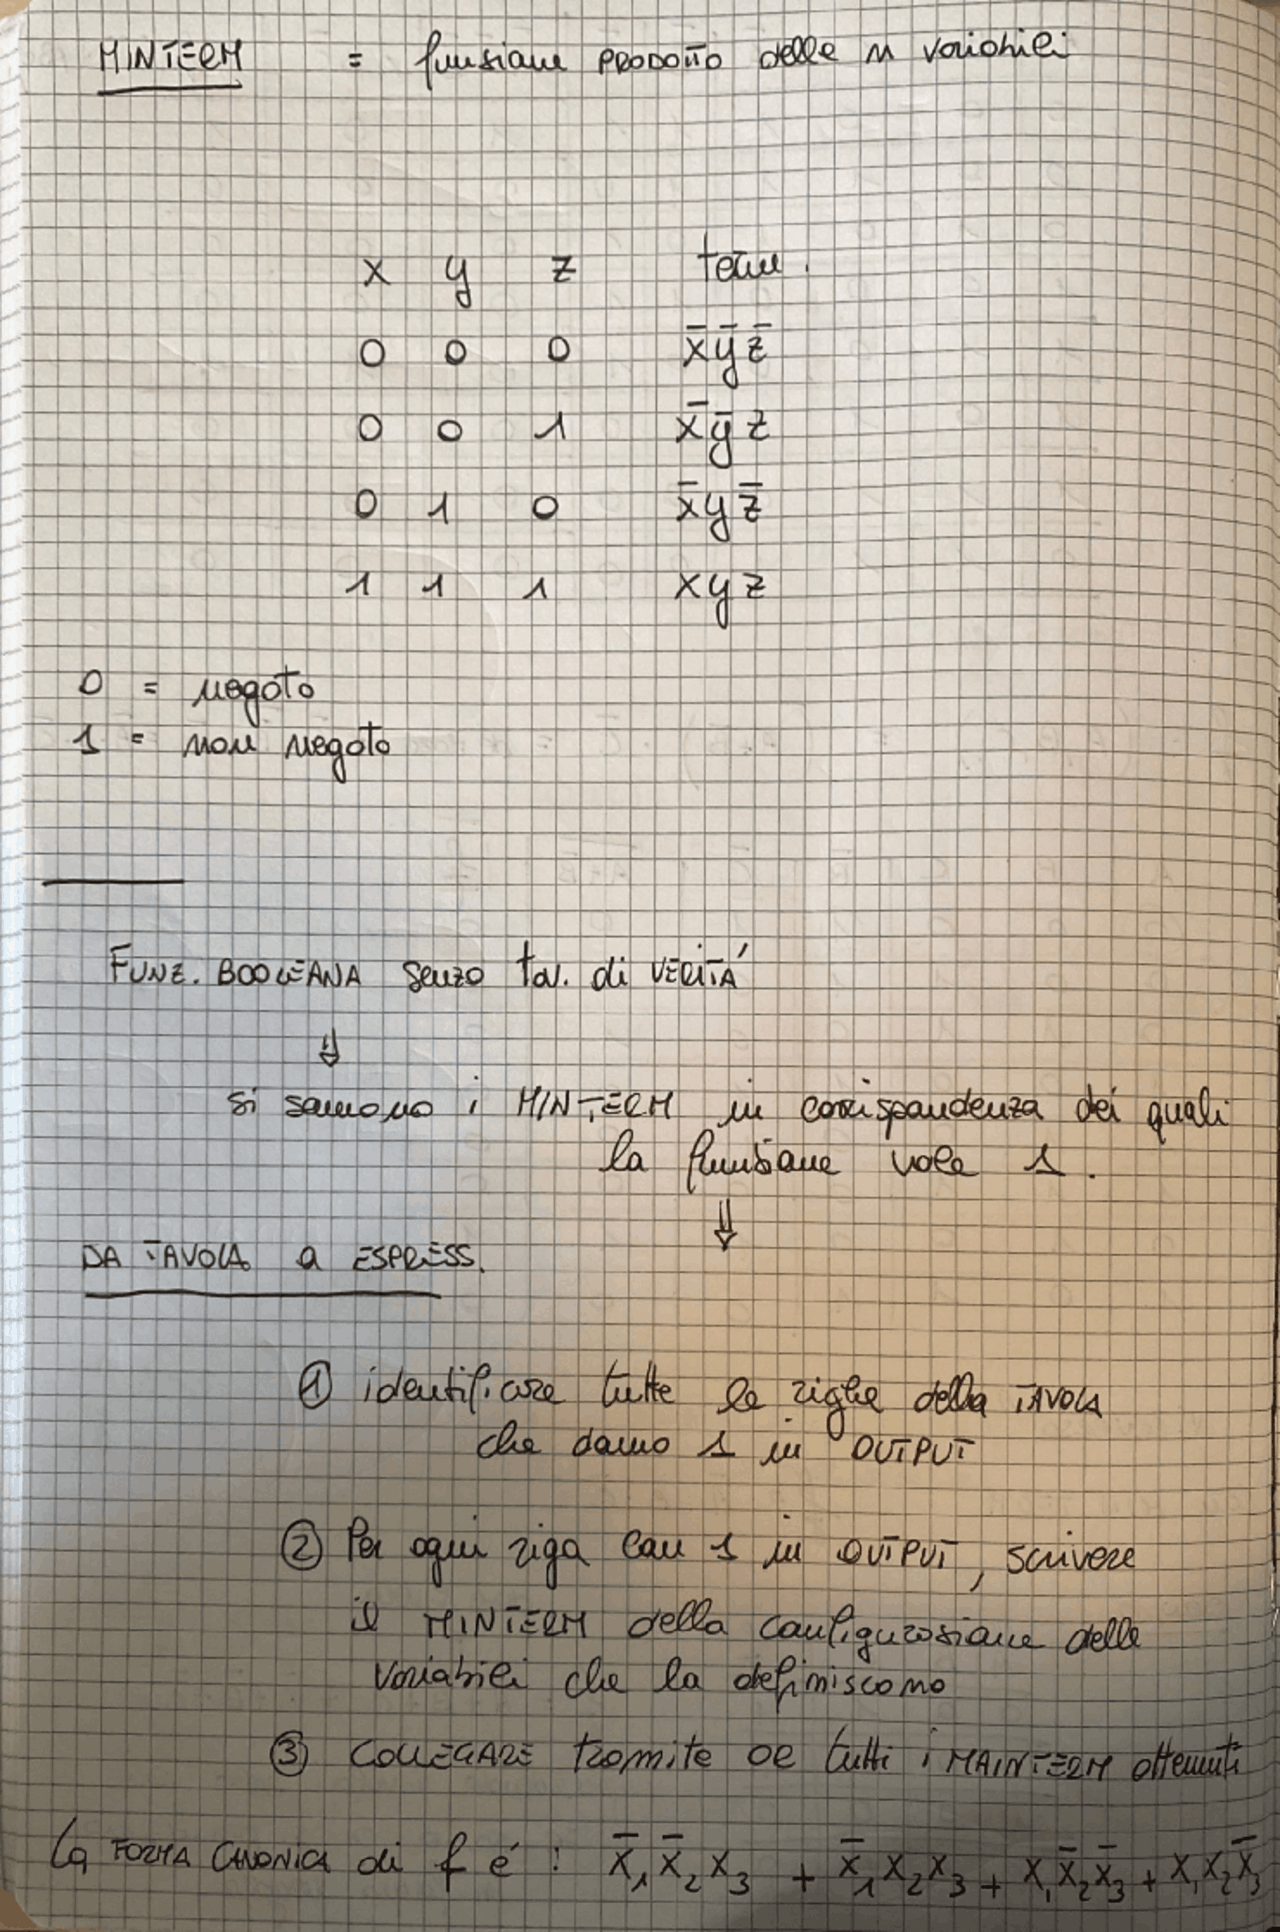 MINTERM = funzione PRODOTTO delle n variabili
x y z term.
0 0 0 x̄ȳz̄
0 0 1 x̄ȳz
0 1 0 x̄yz̄
1 1 1 xyz
0 = negato
1 = non negato
FUNZ. BOOLEANA senza tav. di VERITÁ
⇓
si sommano i MINTERM in corrispondenza dei quali
la funzione vale 1.
⇓
DA TAVOLA a ESPRESS.
① identificare tutte le righe della TAVOLA
che danno 1 in OUTPUT
② Per ogni riga con 1 in OUTPUT, scrivere
il MINTERM della configurazione delle
variabili che la definiscono
③ COLLEGARE tramite OR tutti i MAINTERM ottenuti
La FORMA CANONICA di f é : x̄₁x̄₂x₃ + x̄₁x₂x₃ + x₁x̄₂x̄₃ + x₁x₂x̄₃